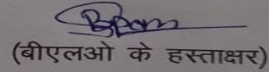 (बीएलओ के हस्ताक्षर)